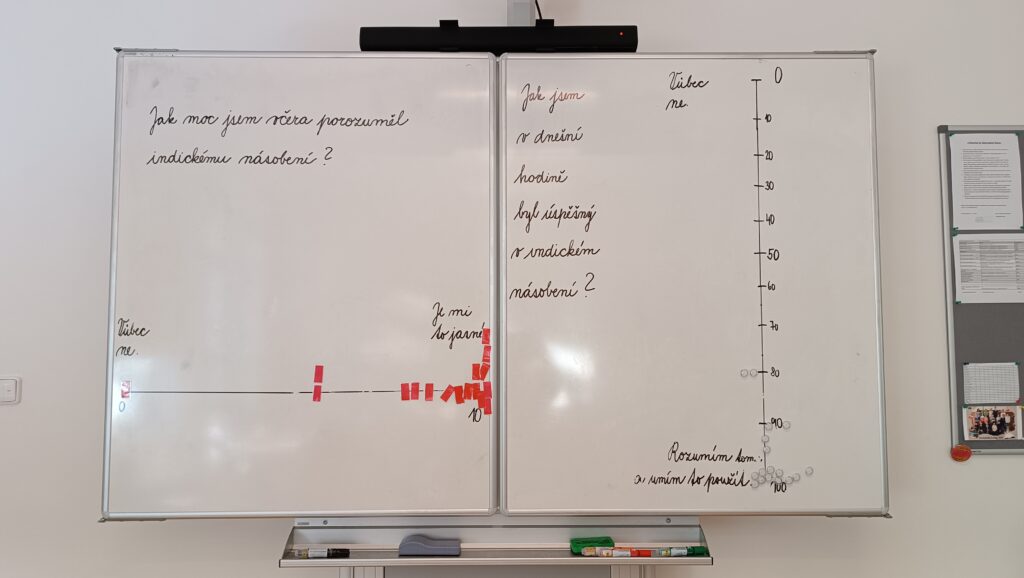 Jak moc jsem včera porozuměl
indickému násobení?
Vůbec
ne.
0
Je mi
to jasné
10
Jak jsem
v dnešní
hodině
byl úspěšný
v indickém
násobení?
Vůbec
ne.
0
10
20
30
40
50
60
70
80
90
Rozumím tom
a umím to použít.
100